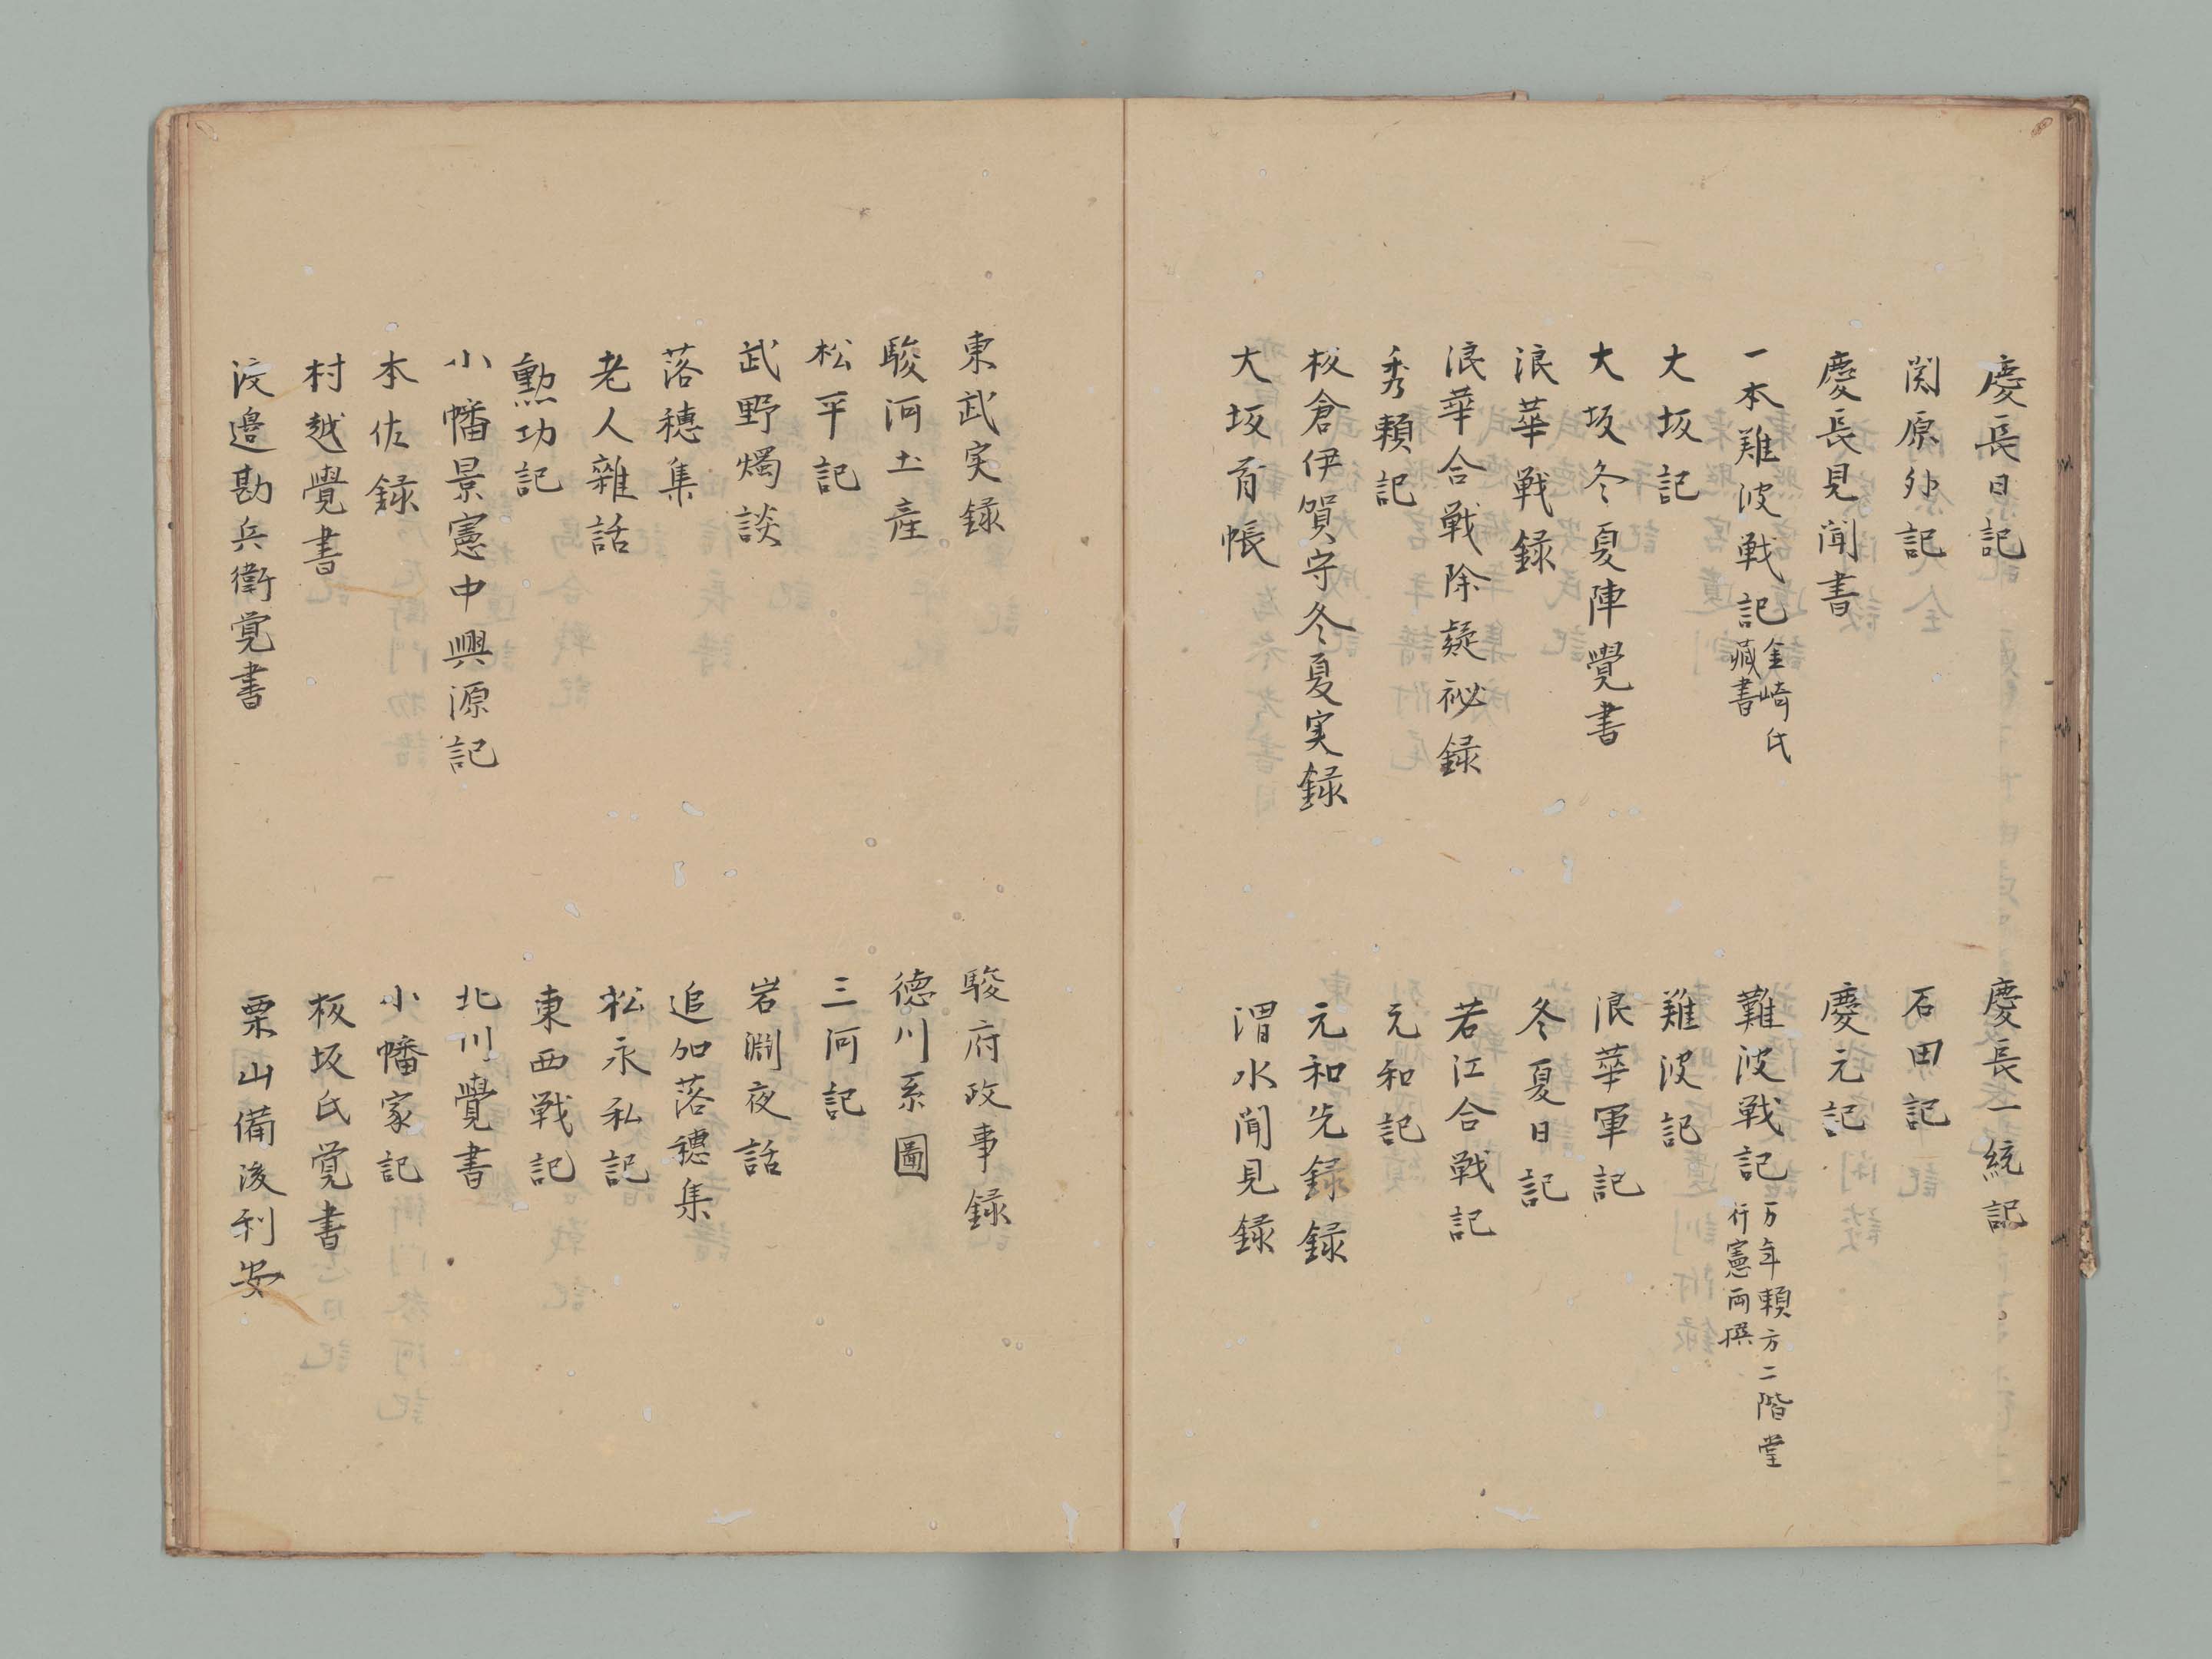 慶長日記　慶長一統記
関原外記　石田記
慶長見聞書　慶元記
一本難波戦記 金崎氏蔵書　難波戦記 万年頼方二階堂行憲両撰
大坂記　難波記
大坂冬夏陣覺書　浪華軍記
浪華戦録　冬夏日記
浪華合戦除疑祕録　若江合戦記
秀頼記　元和記
板倉伊賀守冬夏実録　元和先録録
大坂首帳　渭水聞見録
東武実録　駿府政事録
駿河土産　徳川系圖
松平記　三河記
武野燭談　岩淵夜話
落穂集　追加落穂集
老人雜話　松永私記
勲功記　東西戦記
小幡景憲中興源記　北川覺書
本佐録　小幡家記
村越覺書　板坂氏覚書
渡邉勘兵衛覚書　栗山備後利安